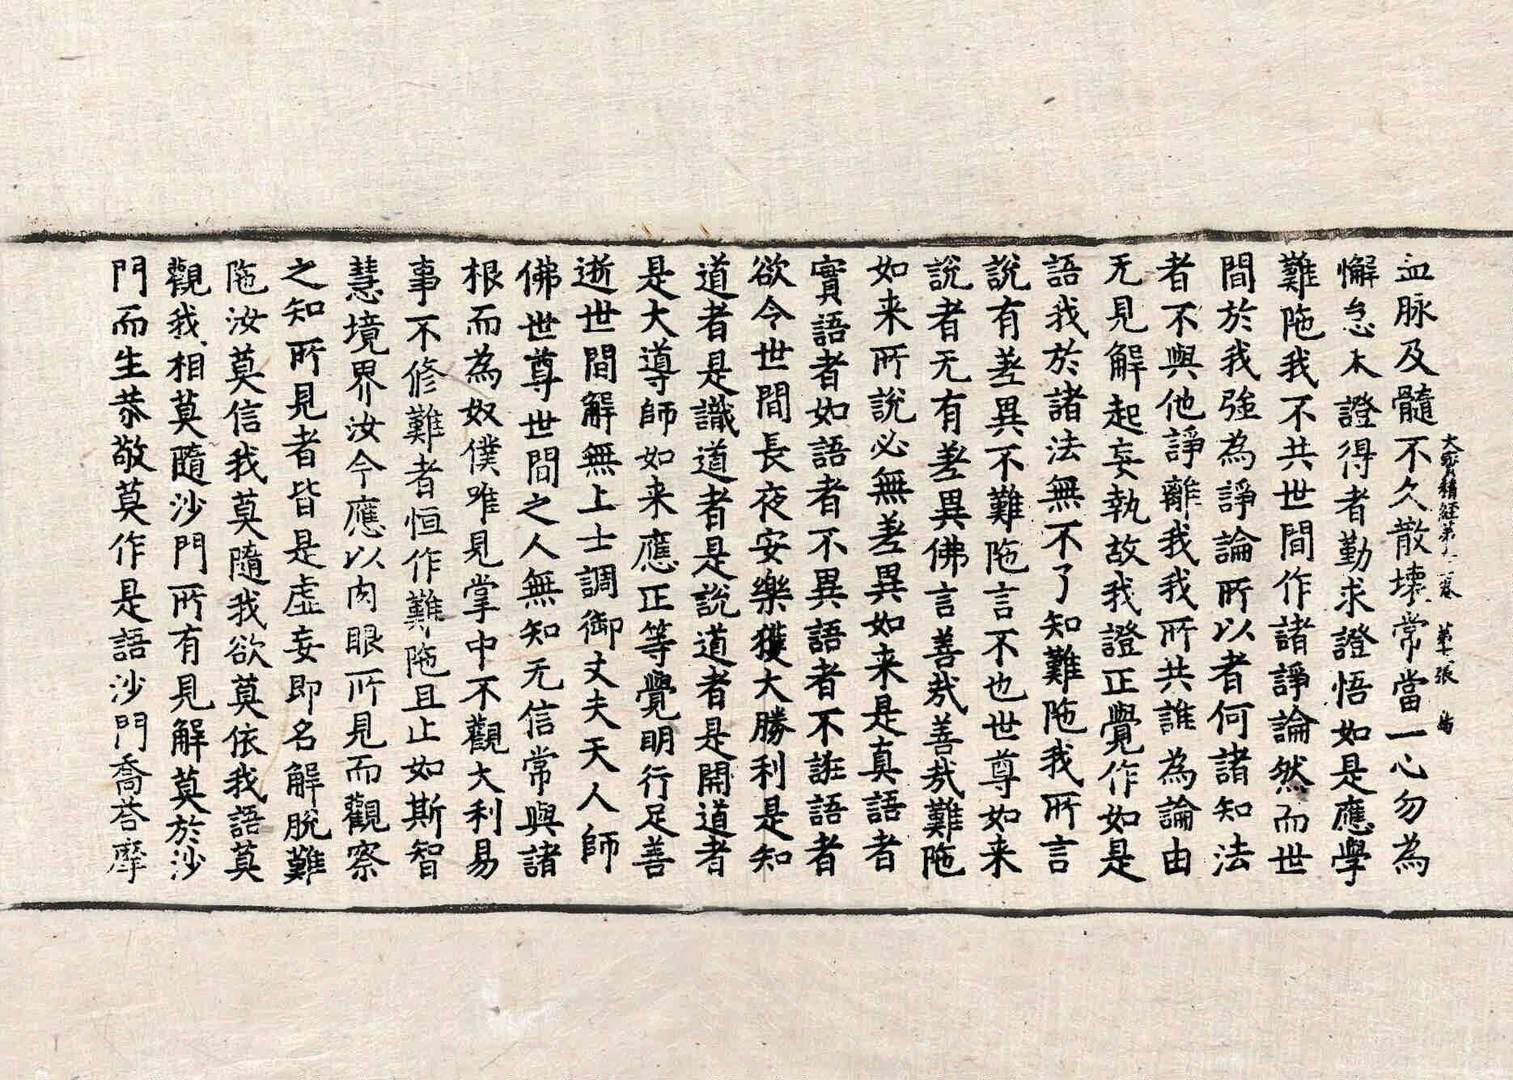 大寶積經第 卷 第 張
血脉及髓不久散壞常當一心勿為
懈怠未證得者勤求證悟如是應學
難陁我不共世間作諸諍論然而世
間於我強為諍論所以者何諸知法
者不與他諍離我我所共誰為論由
无見解起妄執故我證正覺作如是
語我於諸法無不了知難陁我所言
說有差異不難陁言不也世尊如来
說者无有差異佛言善哉善哉難陁
如来所說必無差異如来是真語者
實語者如語者不異語者不誑語者
欲令世間長夜安樂獲大勝利是知
道者是識道者是說道者是開道者
是大導師如来應正等覺明行足善
逝世間解無上士調御丈夫天人師
佛世尊世間之人無知无信常與諸
根而為奴僕唯見掌中不觀大利易
事不修難者恒作難陁且止如斯智
慧境界汝今應以肉眼所見而觀察
之知所見者皆是虛妄即名解脫難
陁汝莫信我莫隨我欲莫依我語莫
觀我相莫隨沙門所有見解莫於沙
門而生恭敬莫作是語沙門喬荅摩